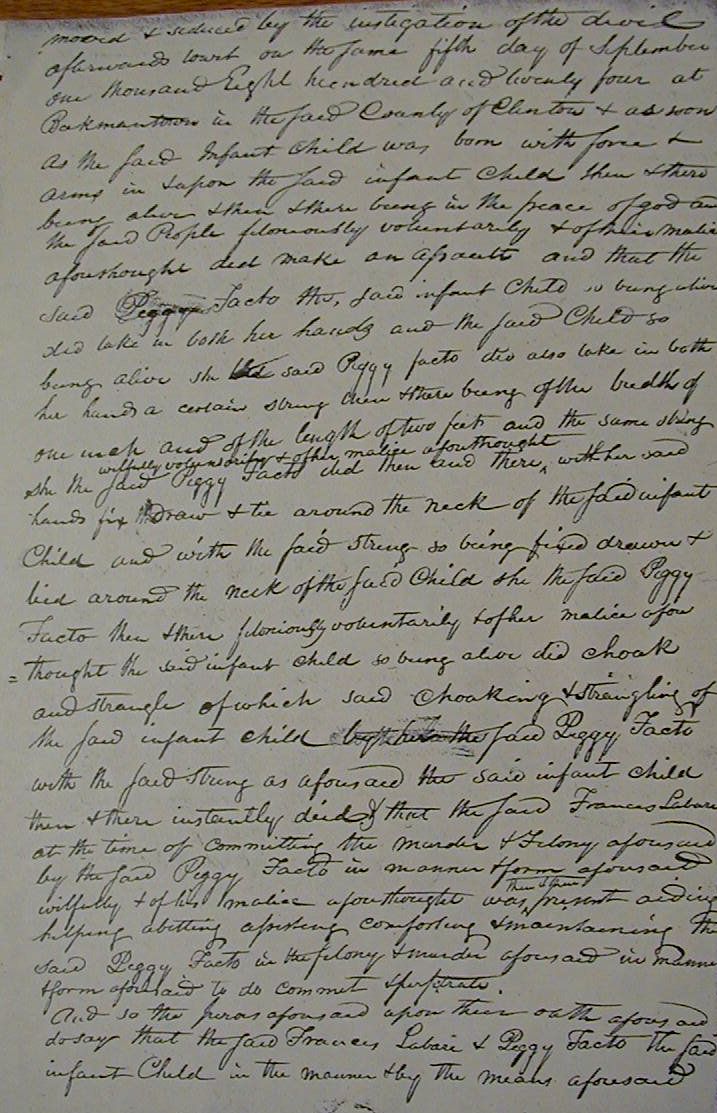 moved & seduced by the instigation of the devil
afterwards towit on the same fifth day of September
one thousand Eight hundred and twenty four at
Beekmantown in the said County of Clinton & as soon
as the said Infant Child was born with force &
arms in & upon the said infant Child then & there
being alive & then & there being in the peace of god and
the said People feloniously voluntarily & of their malice
aforethought did make an assault and that the
said Peggy Facto the, said infant Child so being alive
did take in both her hands and the said Child so
being alive she the said Peggy facto did also take in both
her hands a certain string then & there being of the bredth of
one inch and of the length of two feet and the same string
wilfully voluntarily & of her malice aforethought
she the said Peggy Facto did then and there ^ with her said
hands fix draw & tie around the neck of the said infant
Child and with the said string so being fixed drawn &
tied around the neck of the said Child she the said Peggy
Facto then & there feloniously voluntarily & of her malice afore
= thought the said infant child so being alive did choak
and strangle of which said choaking & strangling of
the said infant child by the said Peggy Facto
with the said string as aforesaid the said infant child
then & there instantly died & that the said Francis Labare
at the time of committing the murder & Felony aforesaid
by the said Peggy Facto in manner & form aforesaid
then & there
wilfully & of his malice aforethought was ^ present aiding
helping abetting assisting comforting & maintaining the
said Peggy Facto in the felony & murder aforesaid in manner
& form aforesaid to do commit & perpetrate.
And so the jurors aforesaid upon their oath aforesaid
do say that the said Frances Labare & Peggy Facto the said
infant Child in the manner & by the means aforesaid